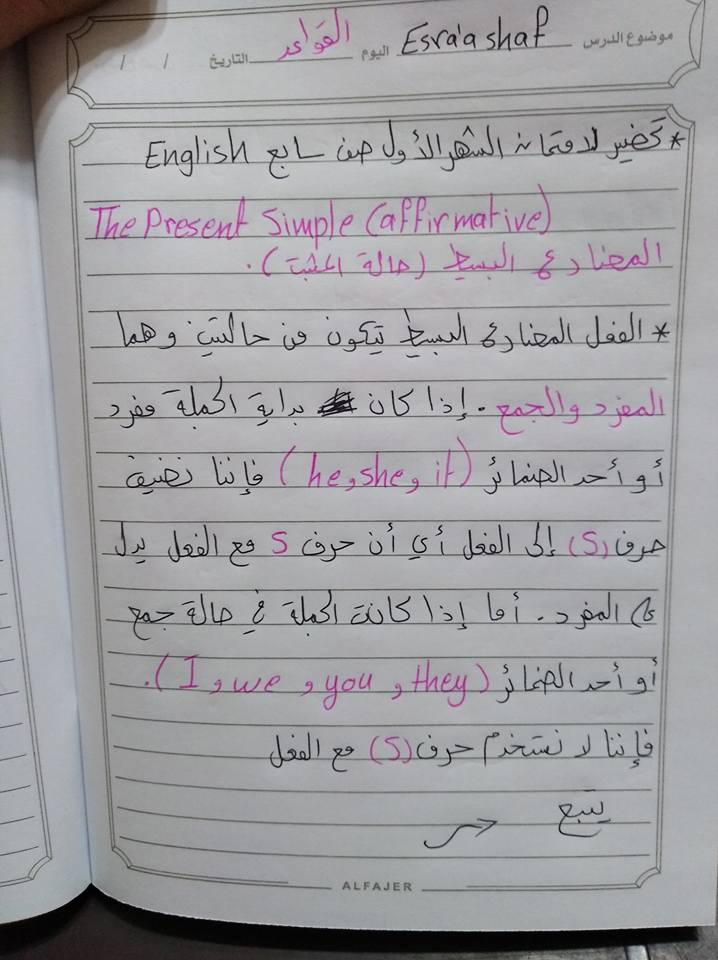 موضوع الدرس Esra'a shaf اليوم القواعد التاريخ / /
* تحضير لامتحان الشهر الأول صف سابع English
The Present Simple (affirmative)
المضارع البسيط (حالة المثبت).
* الفعل المضارع البسيط يتكون من حالتين وهما
المفرد والجمع. إذا كان بداية الجملة مفرد
أو أحد الضمائر (he, she, it) فإننا نضيف
حرف (S) إلى الفعل أي أن حرف S مع الفعل يدل
على المفرد. أما إذا كانت الجملة في حالة جمع
أو أحد الضمائر (I, we, you, they).
فإننا لا نستخدم حرف (S) مع الفعل
يتبع
ALFAJER